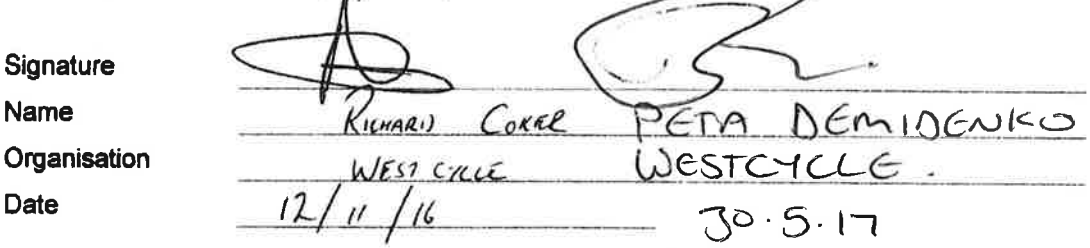 Signature
Name RICHARD COKER PETA DEMIDENKO
Organisation WEST CYCLE WESTCYCLE.
Date 12/11/16 30.5.17